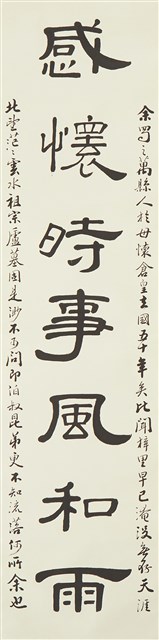 感懷時事風和雨
余蜀之萬縣人於母懷倉皇去國五十年矣比聞梓里早已淹沒無存天涯
北望茫々雲水祖宗廬墓固是渺不可問即伯叔昆弟更不知流落何所余也